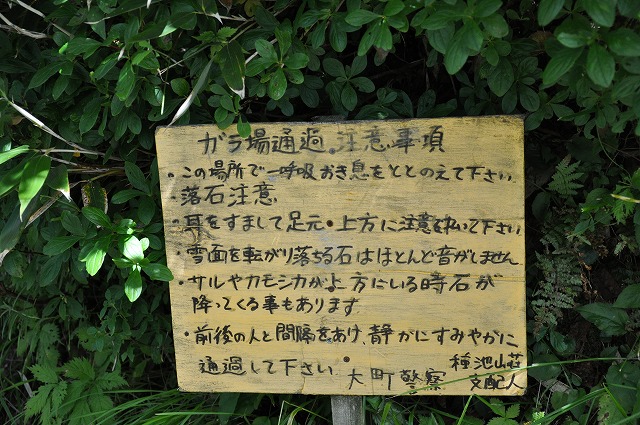 ガラ場通過 注意事項
・この場所で一呼吸おき息をととのえて下さい
・落石注意
・耳をすまして足元・上方に注意を払いて下さい
・雪面を転がり落ちる石はほとんど音がしません
・サルやカモシカが上方にいる時石が
降ってくる事もあります
・前後の人と間隔をあけ、静かにすみやかに
通過して下さい。
大町警察
種池山荘
支配人